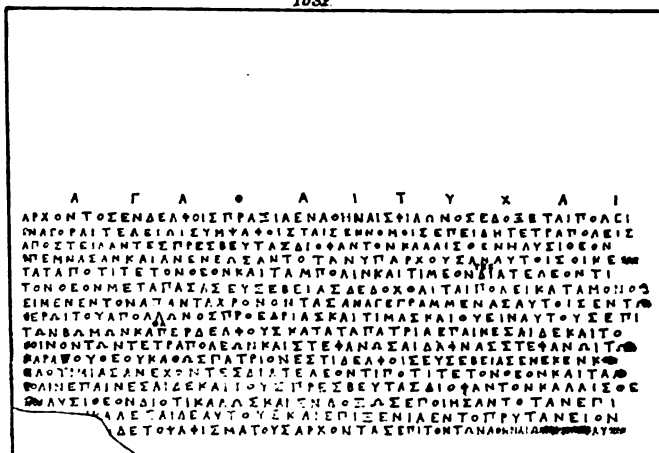 1032.
Α Γ Α Θ Α Ι Τ Υ Χ Α Ι
ΑΡΧΟΝΤΟΣΕΝΔΕΛΦΟΙΣΠΡΑΞΙΑΕΝΑΘΗΝΑΙΣΦΙΛΩΝΟΣΕΔΟΞΕΤΑΙΠΟΛΕΙ
ΕΝΑΓΟΡΑΙΤΕΛΕΙΩΙΣΥΜΨΑΦΟΙΣΤΑΙΣΕΝΝΟΜΟΙΣΕΠΕΙΔΗΤΕΤΡΑΠΟΛΕΙΣ
ΑΠΟΣΤΕΙΛΑΝΤΕΣΠΡΕΣΒΕΥΤΑΣΔΙΟΦΑΝΤΟΝΚΑΛΛΙΣΘΕΝΗΛΥΣΙΘΕΟΝ
ΥΠΕΜΝΑΣΑΝΚΑΙΑΝΕΝΕΩΣΑΝΤΟΤΑΝΥΠΑΡΧΟΥΣΑΝΑΥΤΟΙΣΟΙΚΕ
ΤΑΤΑΠΟΤΙΤΕΤΟΝΘΕΟΝΚΑΙΤΑΜΠΟΛΙΝΚΑΙΤΙΜΕΟΝΔΙΑΤΕΛΕΟΝΤΙ
ΤΟΝΘΕΟΝΜΕΤΑΠΑΣΑΣΕΥΣΕΒΕΙΑΣΔΕΔΟΧΘΑΙΤΑΙΠΟΛΕΙΚΑΤΑΜΟΝΟΣ
ΕΙΜΕΝΕΝΤΟΝΑΠΑΝΤΑΧΡΟΝΟΝΤΑΣΑΝΑΓΕΓΡΑΜΜΕΝΑΣΑΥΤΟΙΣΕΝΤΩ
ΙΕΡΩΙΤΟΥΑΠΟΛΛΩΝΟΣΠΡΟΕΔΡΙΑΣΚΑΙΤΙΜΑΣΚΑΙΘΥΕΙΝΑΥΤΟΥΣΕΠΙ
ΤΩΝΒΩΜΩΝΚΑΠΕΡΔΕΛΦΟΥΣΚΑΤΑΤΑΠΑΤΡΙΑΕΠΑΙΝΕΣΑΙΔΕΚΑΙΤΟ
ΚΟΙΝΟΝΤΩΝΤΕΤΡΑΠΟΛΕΩΝΚΑΙΣΤΕΦΑΝΩΣΑΙΔΑΦΝΑΣΣΤΕΦΑΝΩΙΤΩ
ΠΑΡΑΤΟΥΘΕΟΥΚΑΘΩΣΠΑΤΡΙΟΝΕΣΤΙΔΕΛΦΟΙΣΕΥΣΕΒΕΙΑΣΕΝΕΚΕΝΚ
ΦΙΛΟΤΙΜΙΑΣΑΝΕΧΟΝΤΕΣΔΙΑΤΕΛΕΟΝΤΙΠΟΤΙΤΕΤΟΝΘΕΟΝΚΑΙΤΑ
ΠΟΛΙΝΕΠΑΙΝΕΣΑΙΔΕΚΑΙΤΟΥΣΠΡΕΣΒΕΥΤΑΣΔΙΟΦΑΝΤΟΝΚΑΛΛΙΣΘΕ
ΛΥΣΙΘΕΟΝΔΙΟΤΙΚΑΛΩΣΚΑΙΕΝΔΟΞΩΣΕΠΟΙΗΣΑΝΤΟΤΑΝΕΠΙ
ΑΛΕΣΑΙΔΕΑΥΤΟΥΣΚΑΙΕΠΙΞΕΝΙΑΕΝΤΟΠΡΥΤΑΝΕΙΟΝ
ΔΕΤΟΨΑΦΙΣΜΑΤΟΥΣΑΡΧΟΝΤΑΣΕΠΙΤΟΝΤΩΝΑΘΗΝΑΙΩ